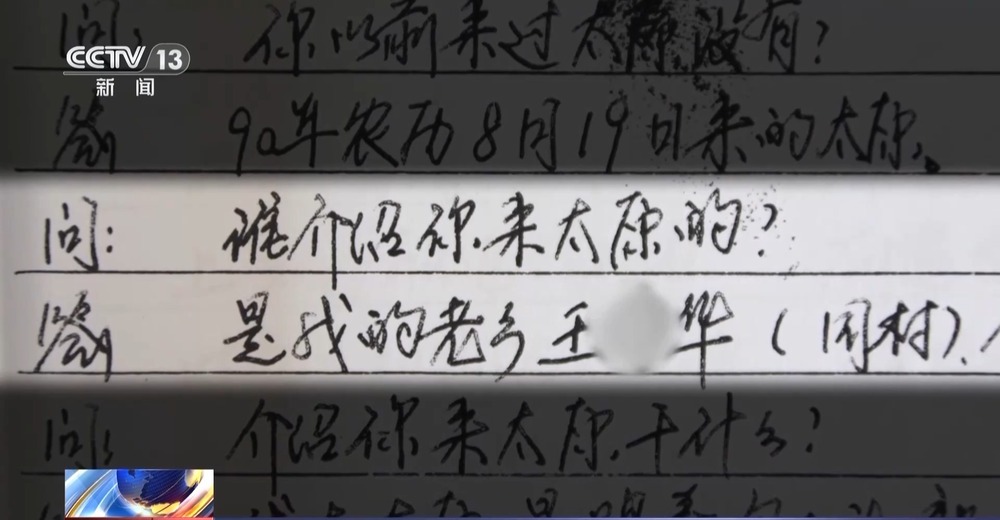 CCTV 13
新闻
问: 你以前来过太原没有?
答 90年农历8月19日来的太原。
问: 谁介绍你来太原的?
答 是我的老乡王 华(同村)、
问: 介绍你来太原干什么?